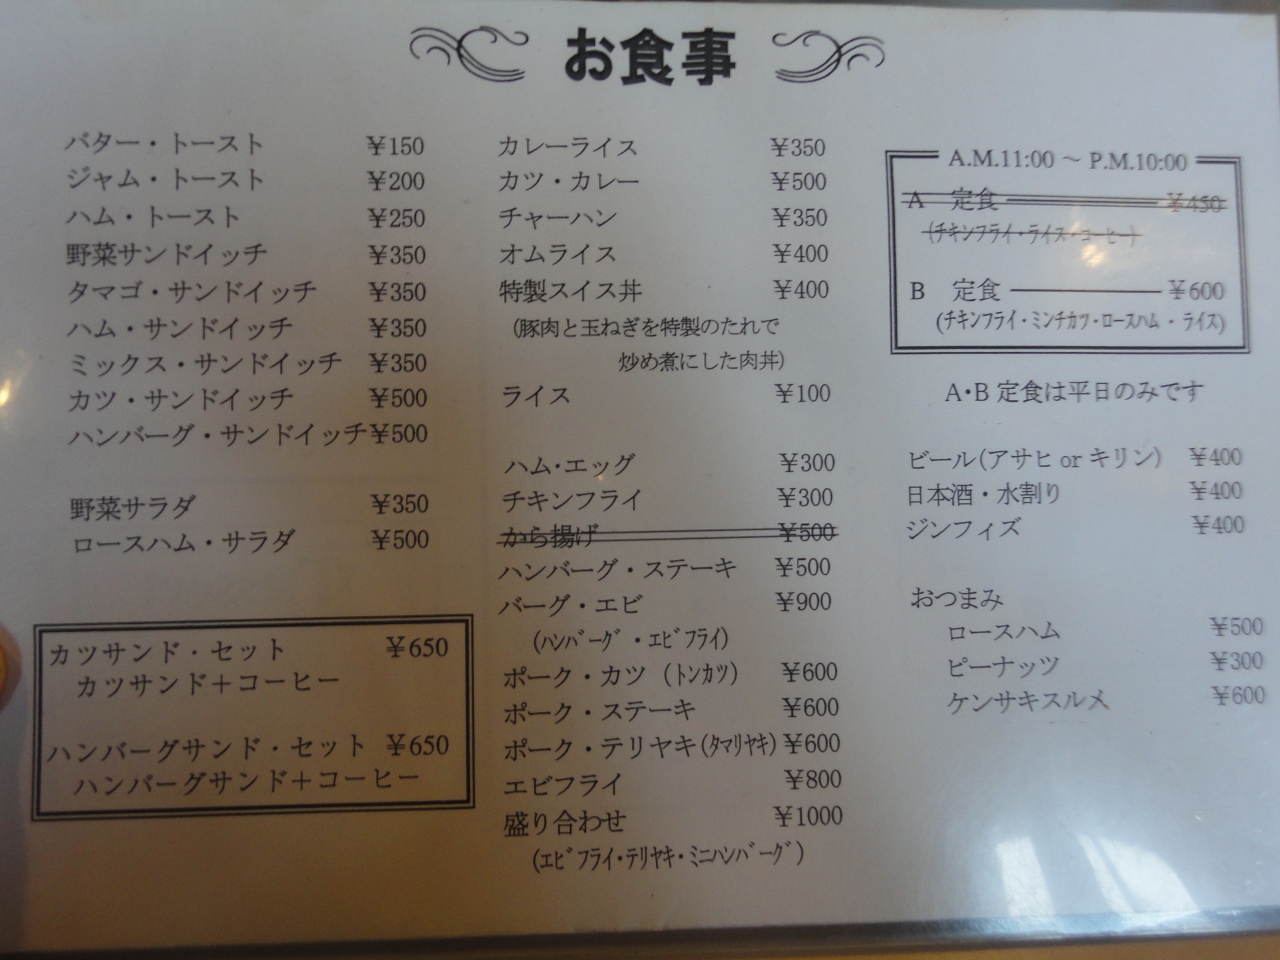 お食事
バター・トースト ¥150
ジャム・トースト ¥200
ハム・トースト ¥250
野菜サンドイッチ ¥350
タマゴ・サンドイッチ ¥350
ハム・サンドイッチ ¥350
ミックス・サンドイッチ ¥350
カツ・サンドイッチ ¥500
ハンバーグ・サンドイッチ ¥500
野菜サラダ ¥350
ロースハム・サラダ ¥500
カツサンド・セット ¥650
カツサンド＋コーヒー
ハンバーグサンド・セット ¥650
ハンバーグサンド＋コーヒー
カレーライス ¥350
カツ・カレー ¥500
チャーハン ¥350
オムライス ¥400
特製スイス丼 ¥400
(豚肉と玉ねぎを特製のたれで
炒め煮にした肉丼)
ライス ¥100
ハム・エッグ ¥300
チキンフライ ¥300
から揚げ ¥500
ハンバーグ・ステーキ ¥500
バーグ・エビ ¥900
(ﾊﾝﾊﾞｰｸﾞ・ｴﾋﾞﾌﾗｲ)
ポーク・カツ (ﾄﾝｶﾂ) ¥600
ポーク・ステーキ ¥600
ポーク・テリヤキ(ﾀﾏﾘﾔｷ) ¥600
エビフライ ¥800
盛り合わせ ¥1000
(ｴﾋﾞﾌﾗｲ・ﾃﾘﾔｷ・ﾐﾆﾊﾝﾊﾞｰｸﾞ)
A.M.11:00 ～ P.M.10:00
A 定食 ¥450
(ﾁｷﾝﾌﾗｲ・ﾗｲｽ・ｺｰﾋｰ)
B 定食 ¥600
(ﾁｷﾝﾌﾗｲ・ﾐﾝﾁｶﾂ・ﾛｰｽﾊﾑ・ﾗｲｽ)
A・B 定食は平日のみです
ビール(アサヒ or キリン) ¥400
日本酒・水割り ¥400
ジンフィズ ¥400
おつまみ
ロースハム ¥500
ピーナッツ ¥300
ケンサキスルメ ¥600